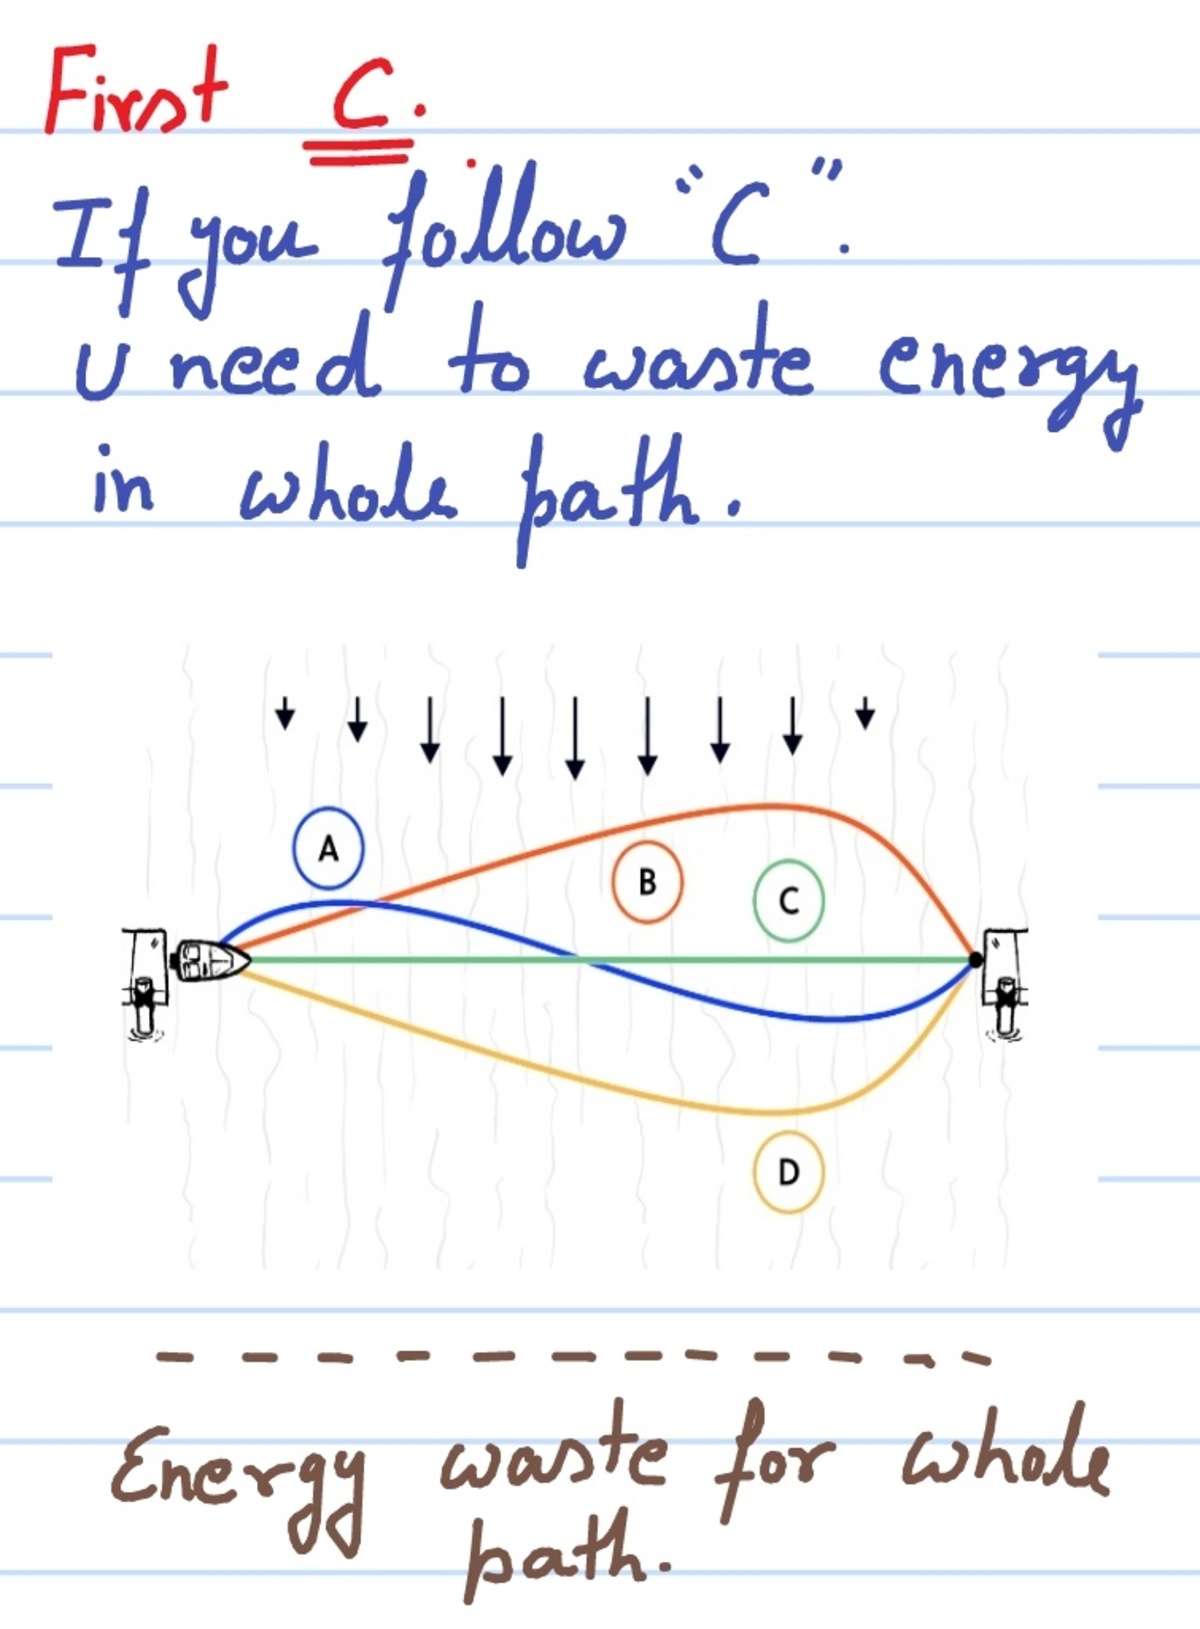 First C.
If you follow "C".
U need to waste energy
in whole path.
A
B
C
D
Energy waste for whole
path.